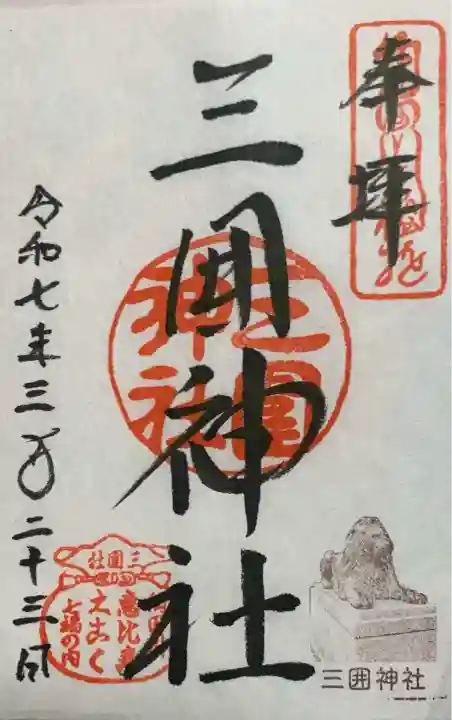 奉拝
三囲神社
令和七年三月二十三日
三囲神社
三囲社
恵比寿
大こく
七福の内
三囲神社